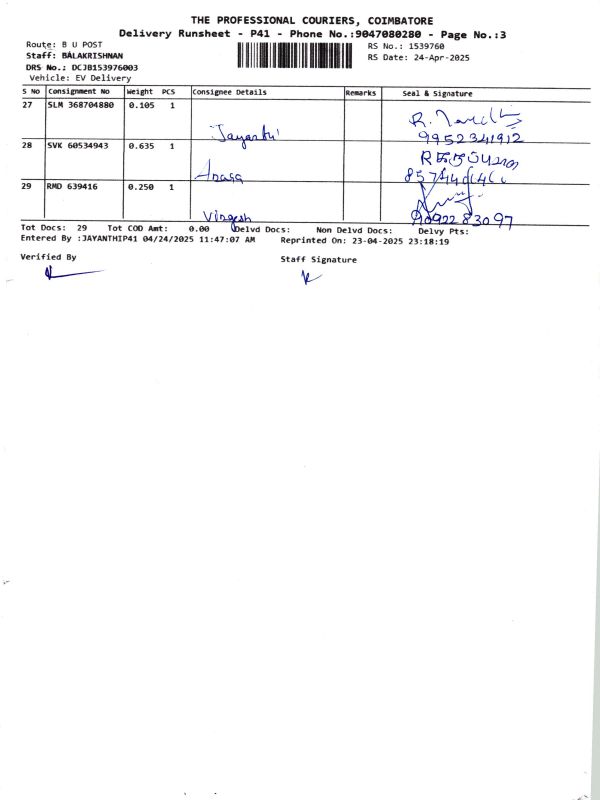 THE PROFESSIONAL COURIERS, COIMBATORE
Delivery Runsheet - P41 - Phone No.:9047080280 - Page No.:3
Route: B U POST
RS No.: 1539760
Staff: BALAKRISHNAN
RS Date: 24-Apr-2025
DRS No.: DCJB153976003
Vehicle: EV Delivery
S No Consignment No Weight PCS Consignee Details Remarks Seal & Signature
27 SLM 368704880 0.105 1
Jayanthi
9952341912
28 SVK 60534943 0.635 1
29 RMD 639416 0.250 1
Vignesh
Tot Docs: 29 Tot COD Amt: 0.00 Delvd Docs: Non Delvd Docs: Delvy Pts:
Entered By :JAYANTHIP41 04/24/2025 11:47:07 AM Reprinted On: 23-04-2025 23:18:19
Verified By
Staff Signature